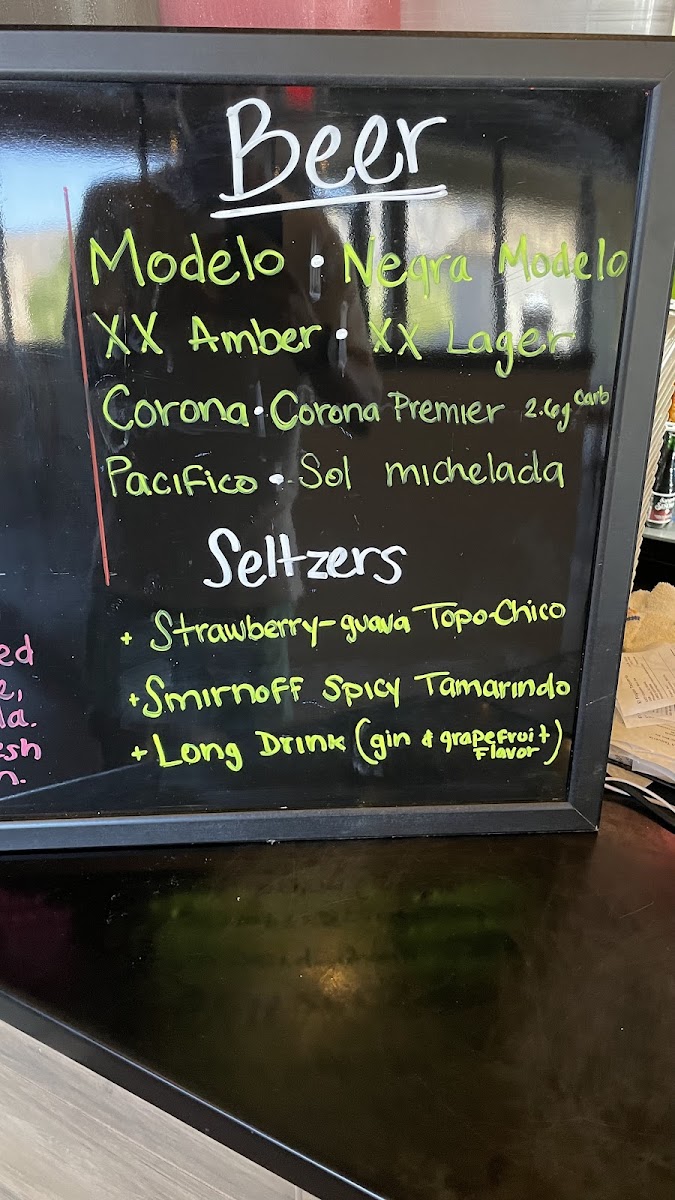 Beer
Modelo • Negra Modelo
XX Amber • XX Lager
Corona • Corona Premier 2.6g carb
Pacifico • Sol michelada
Seltzers
+ Strawberry-guava Topo-Chico
+ Smirnoff Spicy Tamarindo
+ Long Drink (gin & grapefruit flavor)
ed
e,
la.
esh
n.